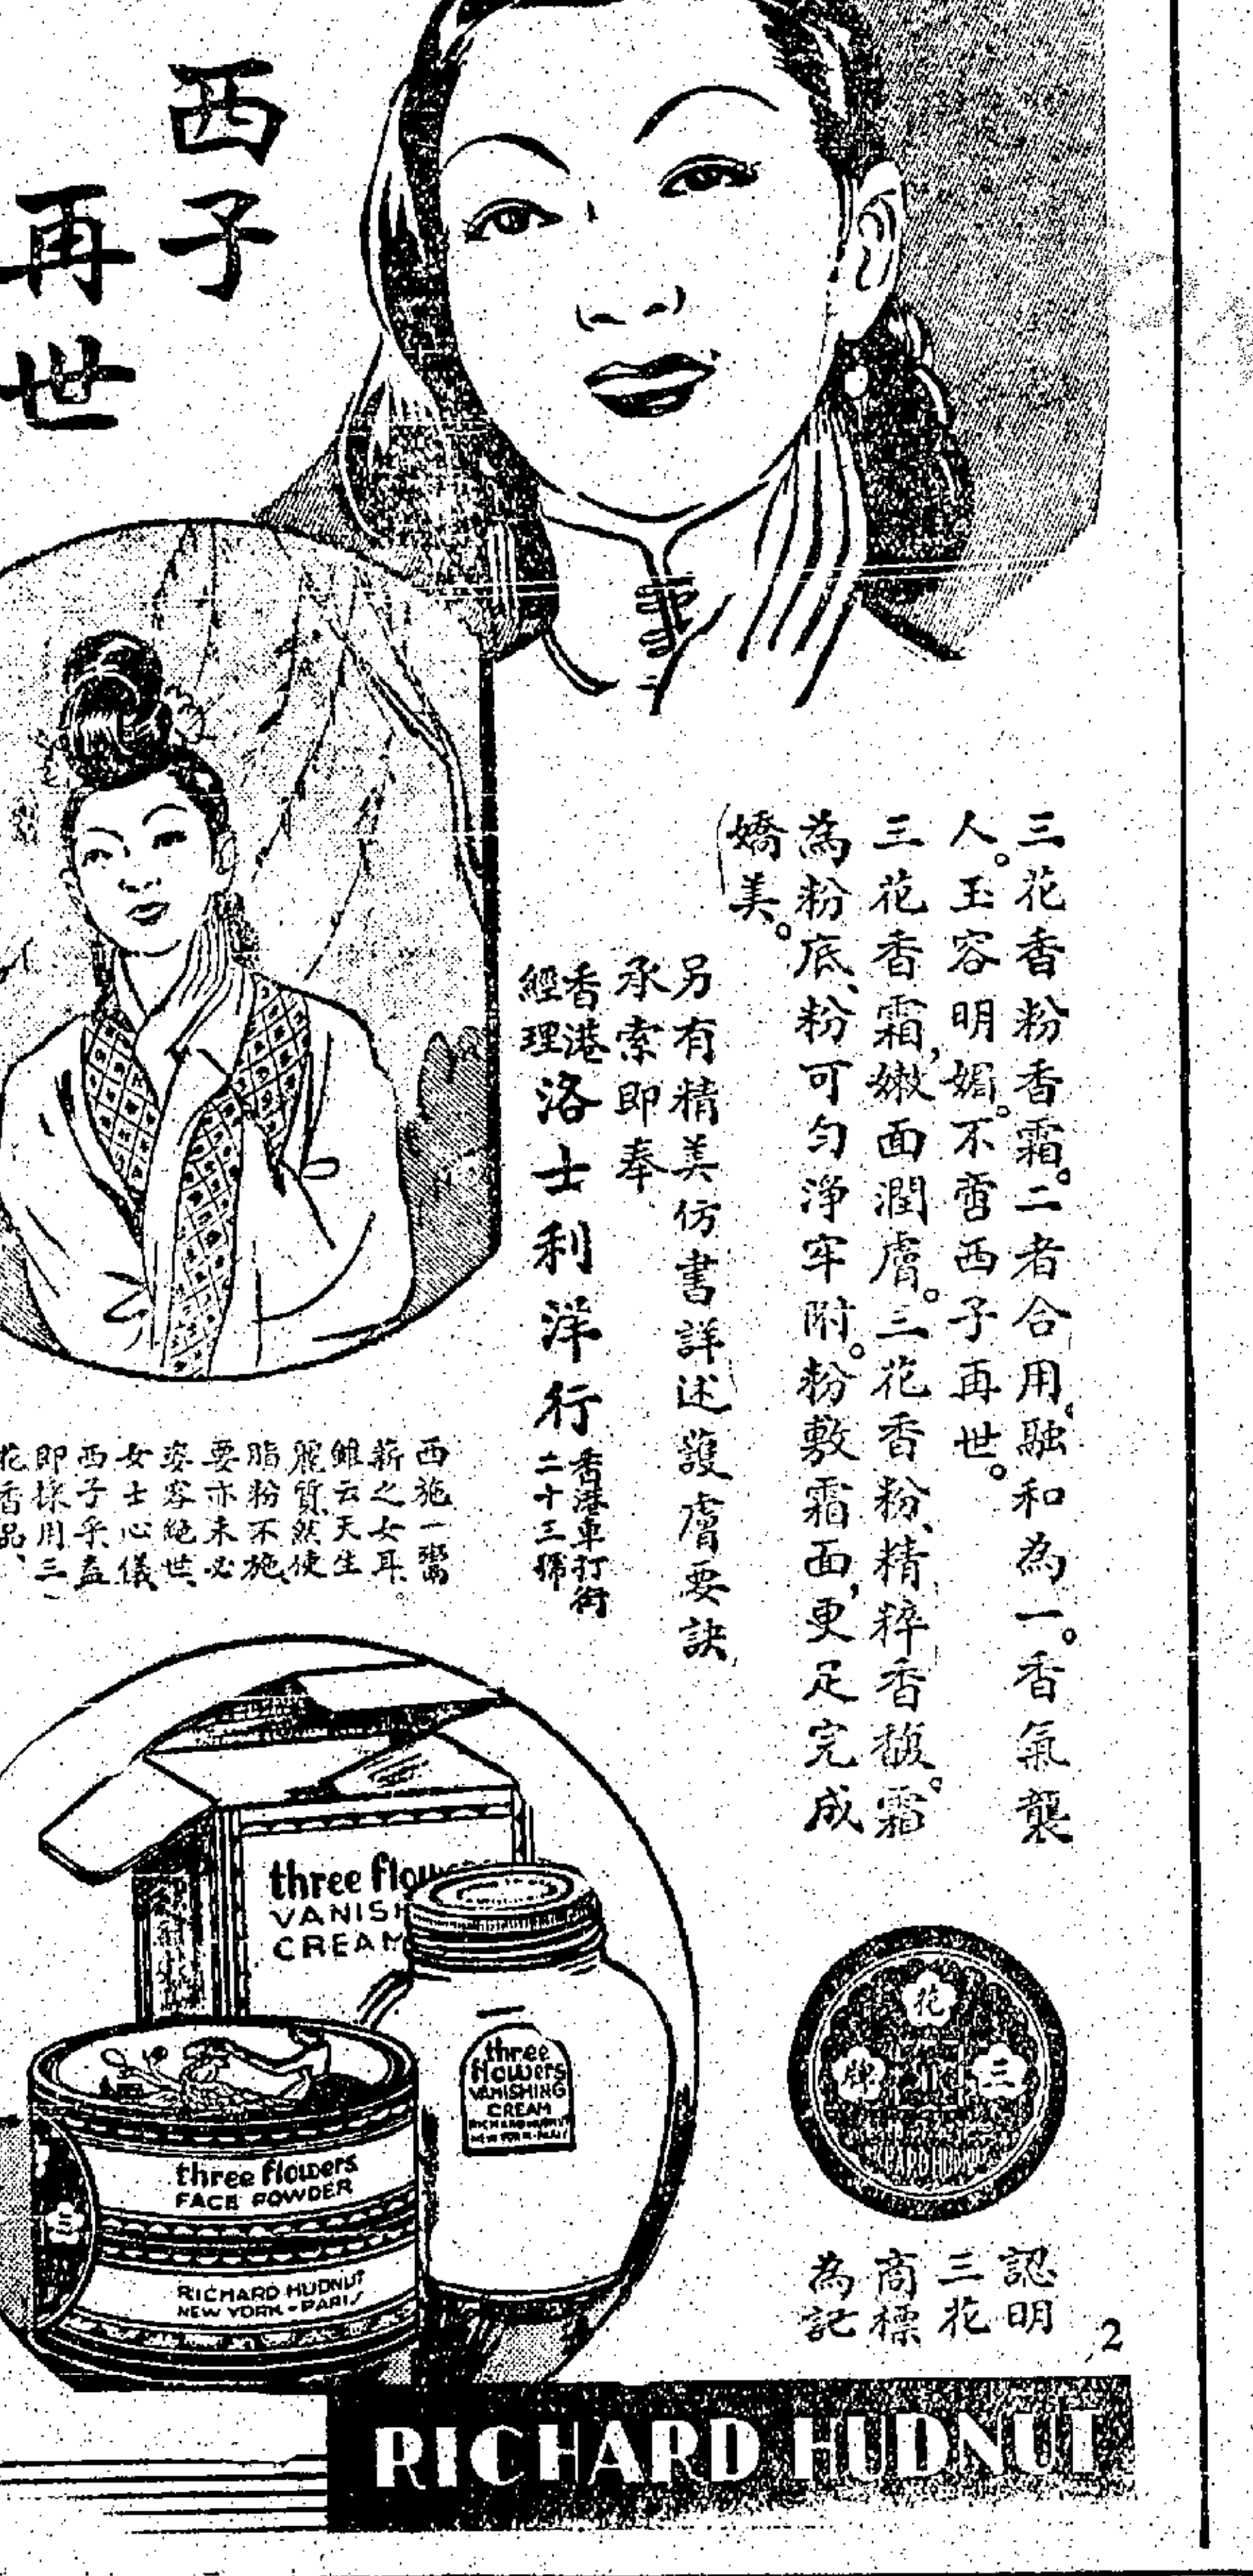 西子
再世
三花香粉香霜。二者合用。融和為一。香氣襲
人。玉容明媚。不啻西子再世。
三花香霜，嫩面潤膚。三花香粉、精粹香馥。霜
為粉底、粉可勻淨牢附。粉敷霜面，更足完成
嬌美。
另有精美仿書詳述護膚要訣
承索即奉
香港
經理
洛士利洋行
香港車打街
二十三號
西施一鬻
薪之女耳。
雖云天生
麗質、然使
脂粉不施、
要亦未必
姿容絕世、
女士心儀
西子乎、盍
即採用三
花香品、
three flowers
VANISH
CREAM
three
flowers
VANISHING
CREAM
RICHARD HUDNUT
NEW YORK - PARIS
three flowers
FACE POWDER
RICHARD HUDNUT
NEW YORK - PARIS
三
花
三
牌
認明
三花
商標
為記
2
RICHARD HUDNUT